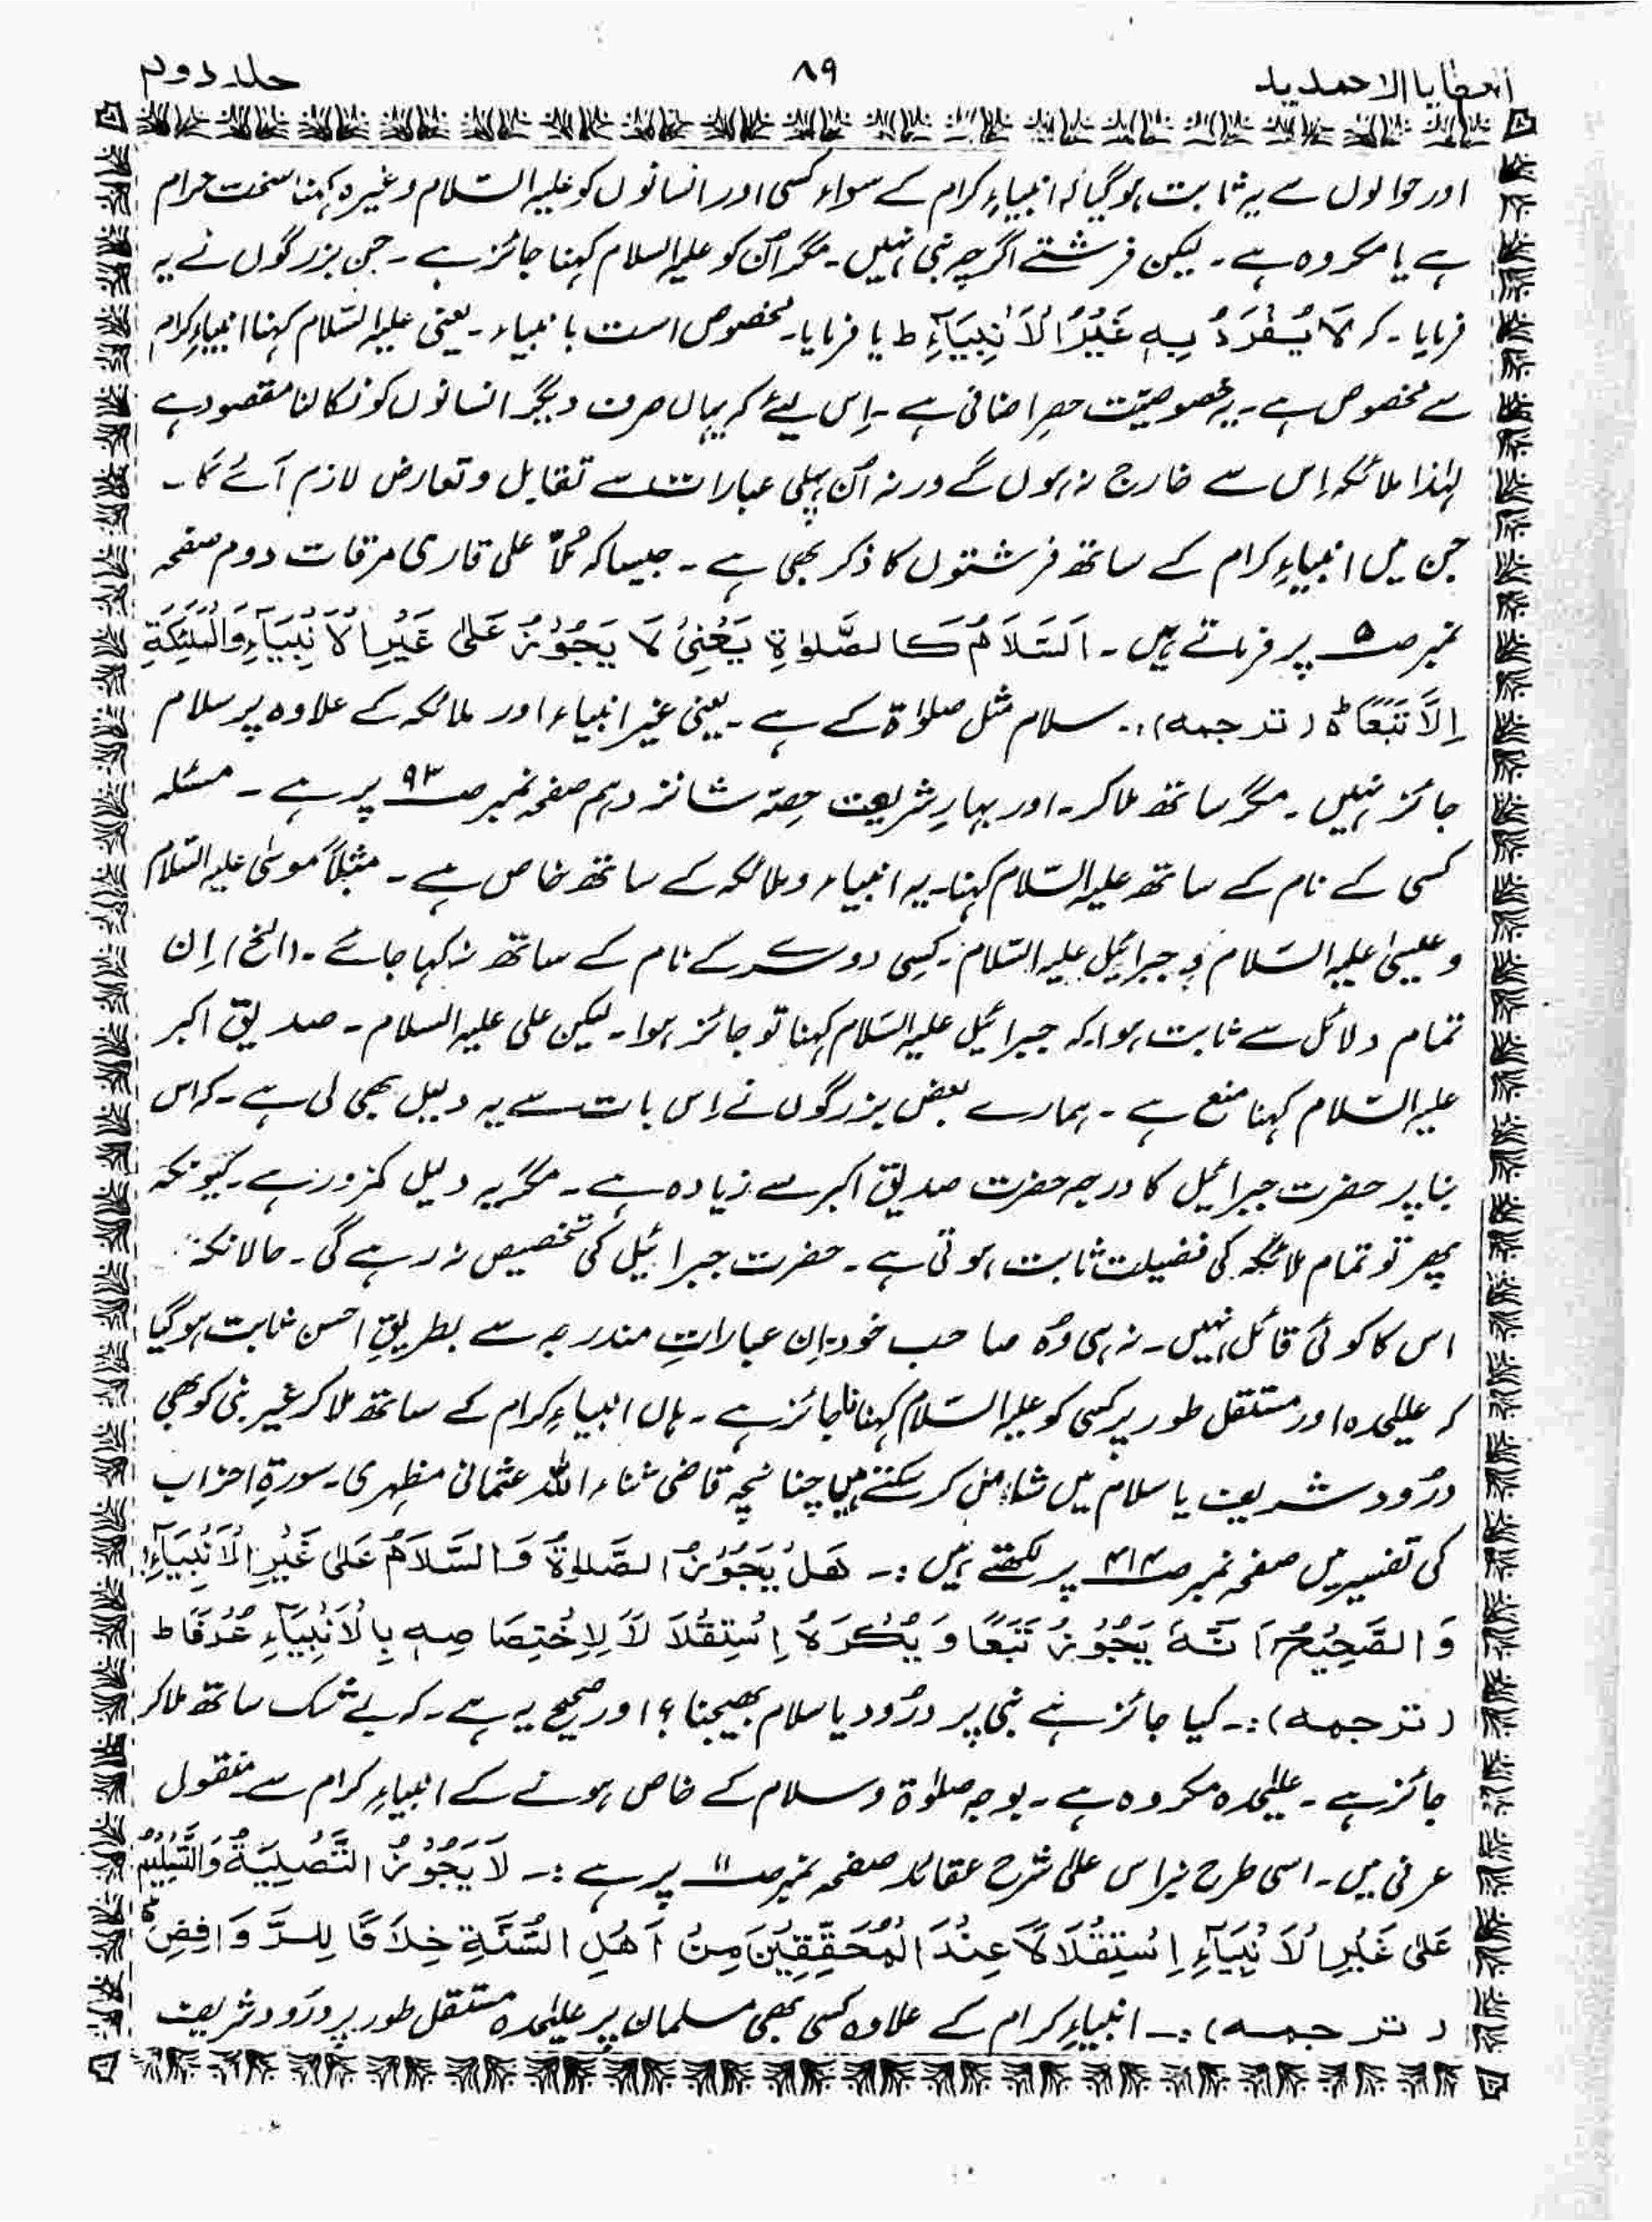 العطایا الاحمدیہ
۸۹
جلد دوم
اور حوالوں سے یہ ثابت ہو گیا کہ انبیاءِ کرام کے سواء کسی اور انسانوں کو علیہ السّلام وغیرہ کہنا سخت حرام
ہے یا مکروہ ہے۔ لیکن فرشتے اگرچہ نبی نہیں۔ مگر اُن کو علیہ السلام کہنا جائز ہے۔ جن بزرگوں نے یہ
فرمایا۔ کہ لَا یُفْرَدُ بِہٖ غَیْرُ الْاَنْبِیَآءِ ط یا فرمایا۔ مخصوص است بانبیاء۔ یعنی علیہ السّلام کہنا انبیاءِ کرام
سے مخصوص ہے۔ یہ خصوصیّت حصرِ اضافی ہے۔ اِس لیئے کہ یہاں صرف دیگر انسانوں کو نکالنا مقصود ہے
لہٰذا ملائکہ اِس سے خارج نہ ہوں گے ورنہ اُن پہلی عبارات سے تقابل و تعارض لازم آئے گا۔
جن میں انبیاءِ کرام کے ساتھ فرشتوں کا ذکر بھی ہے۔ جیسا کہ مُلّا علی قاری مرقات دوم صفحہ
نمبر صـ۵ پر فرماتے ہیں۔ اَلسَّلَامُ کَالصَّلٰوۃِ یَعْنِیْ لَا یَجُوْزُ عَلٰی غَیْرِ الْاَنْبِیَآءِ وَالْمَلٰئِکَۃِ
اِلَّا تَبَعًا ط (ترجمہ):۔ سلام مثل صلوٰۃ کے ہے۔ یعنی غیر انبیاء اور ملائکہ کے علاوہ پر سلام
جائز نہیں۔ مگر ساتھ ملا کر۔ اور بہارِ شریعت حصّہ شانزدہم صفحہ نمبر صـ۹۳ پر ہے۔ مسئلہ
کسی کے نام کے ساتھ علیہ السّلام کہنا۔ یہ انبیاء و ملائکہ کے ساتھ خاص ہے۔ مثلًا موسٰی علیہ السّلام
و عیسٰی علیہ السّلام و جبرائیل علیہ السّلام۔ کسِی دوسرے کے نام کے ساتھ نہ کہا جائے۔ (الخ) اِن
تمام دلائل سے ثابت ہوا کہ جبرائیل علیہ السّلام کہنا تو جائز ہوا۔ لیکن علی علیہ السلام۔ صدیق اکبر
علیہ السّلام کہنا منع ہے۔ ہمارے بعض بزرگوں نے اِس بات سے یہ دلیل بھی لی ہے۔ کہ اس
بنا پر حضرت جبرائیل کا درجہ حضرت صدیق اکبر سے زیادہ ہے۔ مگر یہ دلیل کمزور ہے۔ کیونکہ
پھر تو تمام ملائکہ کی فضیلت ثابت ہوتی ہے۔ حضرت جبرائیل کی تخصیص نہ رہے گی۔ حالانکہ
اس کا کوئی قائل نہیں۔ نہ ہی وُہ صاحب خود۔ اِن عباراتِ مندرجہ سے بطریقِ احسن ثابت ہو گیا
کہ علیٰحدہ اور مستقل طور پر کسی کو علیہ السّلام کہنا ناجائز ہے۔ ہاں انبیاءِ کرام کے ساتھ ملا کر غیر نبی کو بھی
درُود شریف یا سلام میں شامل کر سکتے ہیں چنانچہ قاضی ثناء اللہ عثمانی مظہری۔ سورۃِ احزاب
کی تفسیر میں صفحہ نمبر صـ۴۱۴ پر لکھتے ہیں:۔ ھَلْ یَجُوْزُ الصَّلٰوۃُ وَالسَّلَامُ عَلٰی غَیْرِ الْاَنْبِیَآءِ!
وَالصَّحِیْحُ اَنَّہٗ یَجُوْزُ تَبَعًا وَ یُکْرَہُ اِسْتِقْلَالًا لِاِخْتِصَاصِہٖ بِالْاَنْبِیَآءِ عُرْفًا ط
(ترجمہ):۔ کیا جائز ہے نبی پر درُود یا سلام بھیجنا؟ اور صحیح یہ ہے۔ کہ بے شک ساتھ ملا کر
جائز ہے۔ علیٰحدہ مکروہ ہے۔ بوجہ صلوٰۃ وسلام کے خاص ہونے کے انبیاءِ کرام سے منقول
عرفی میں۔ اسی طرح نبراس علی شرح عقائد صفحہ نمبر صـ۱۱ پر ہے:۔ لَا یَجُوْزُ التَّصْلِیَۃُ وَالتَّسْلِیْمُ
عَلٰی غَیْرِ الْاَنْبِیَآءِ اِسْتِقْلَالًا عِنْدَ الْمُحَقِّقِیْنَ مِنْ اَھْلِ السُّنَّۃِ خِلَافًا لِلرَّوَافِضِ ط
(ترجمہ):۔ انبیاءِ کرام کے علاوہ کسی بھی مسلمان پر علیٰحدہ مستقل طور پر درُود شریف